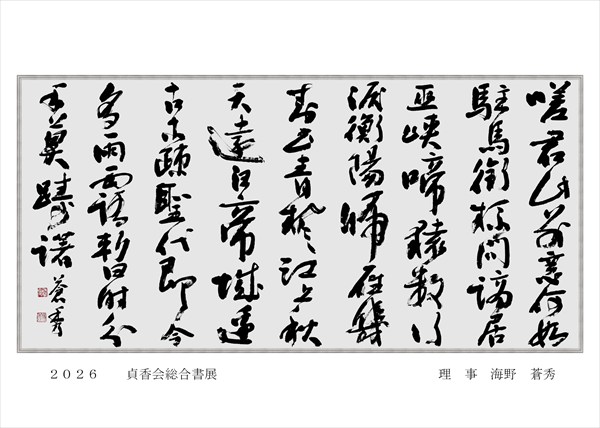 嗟君此別意何如
駐馬銜杯問謫居
巫峽啼猿數行
淚衡陽歸雁幾
封書青楓江上秋
天遠白帝城邊
古木疎聖代即今
多雨露暫時分
手莫躊躇 蒼秀
2026 貞香会総合書展
理事 海野 蒼秀